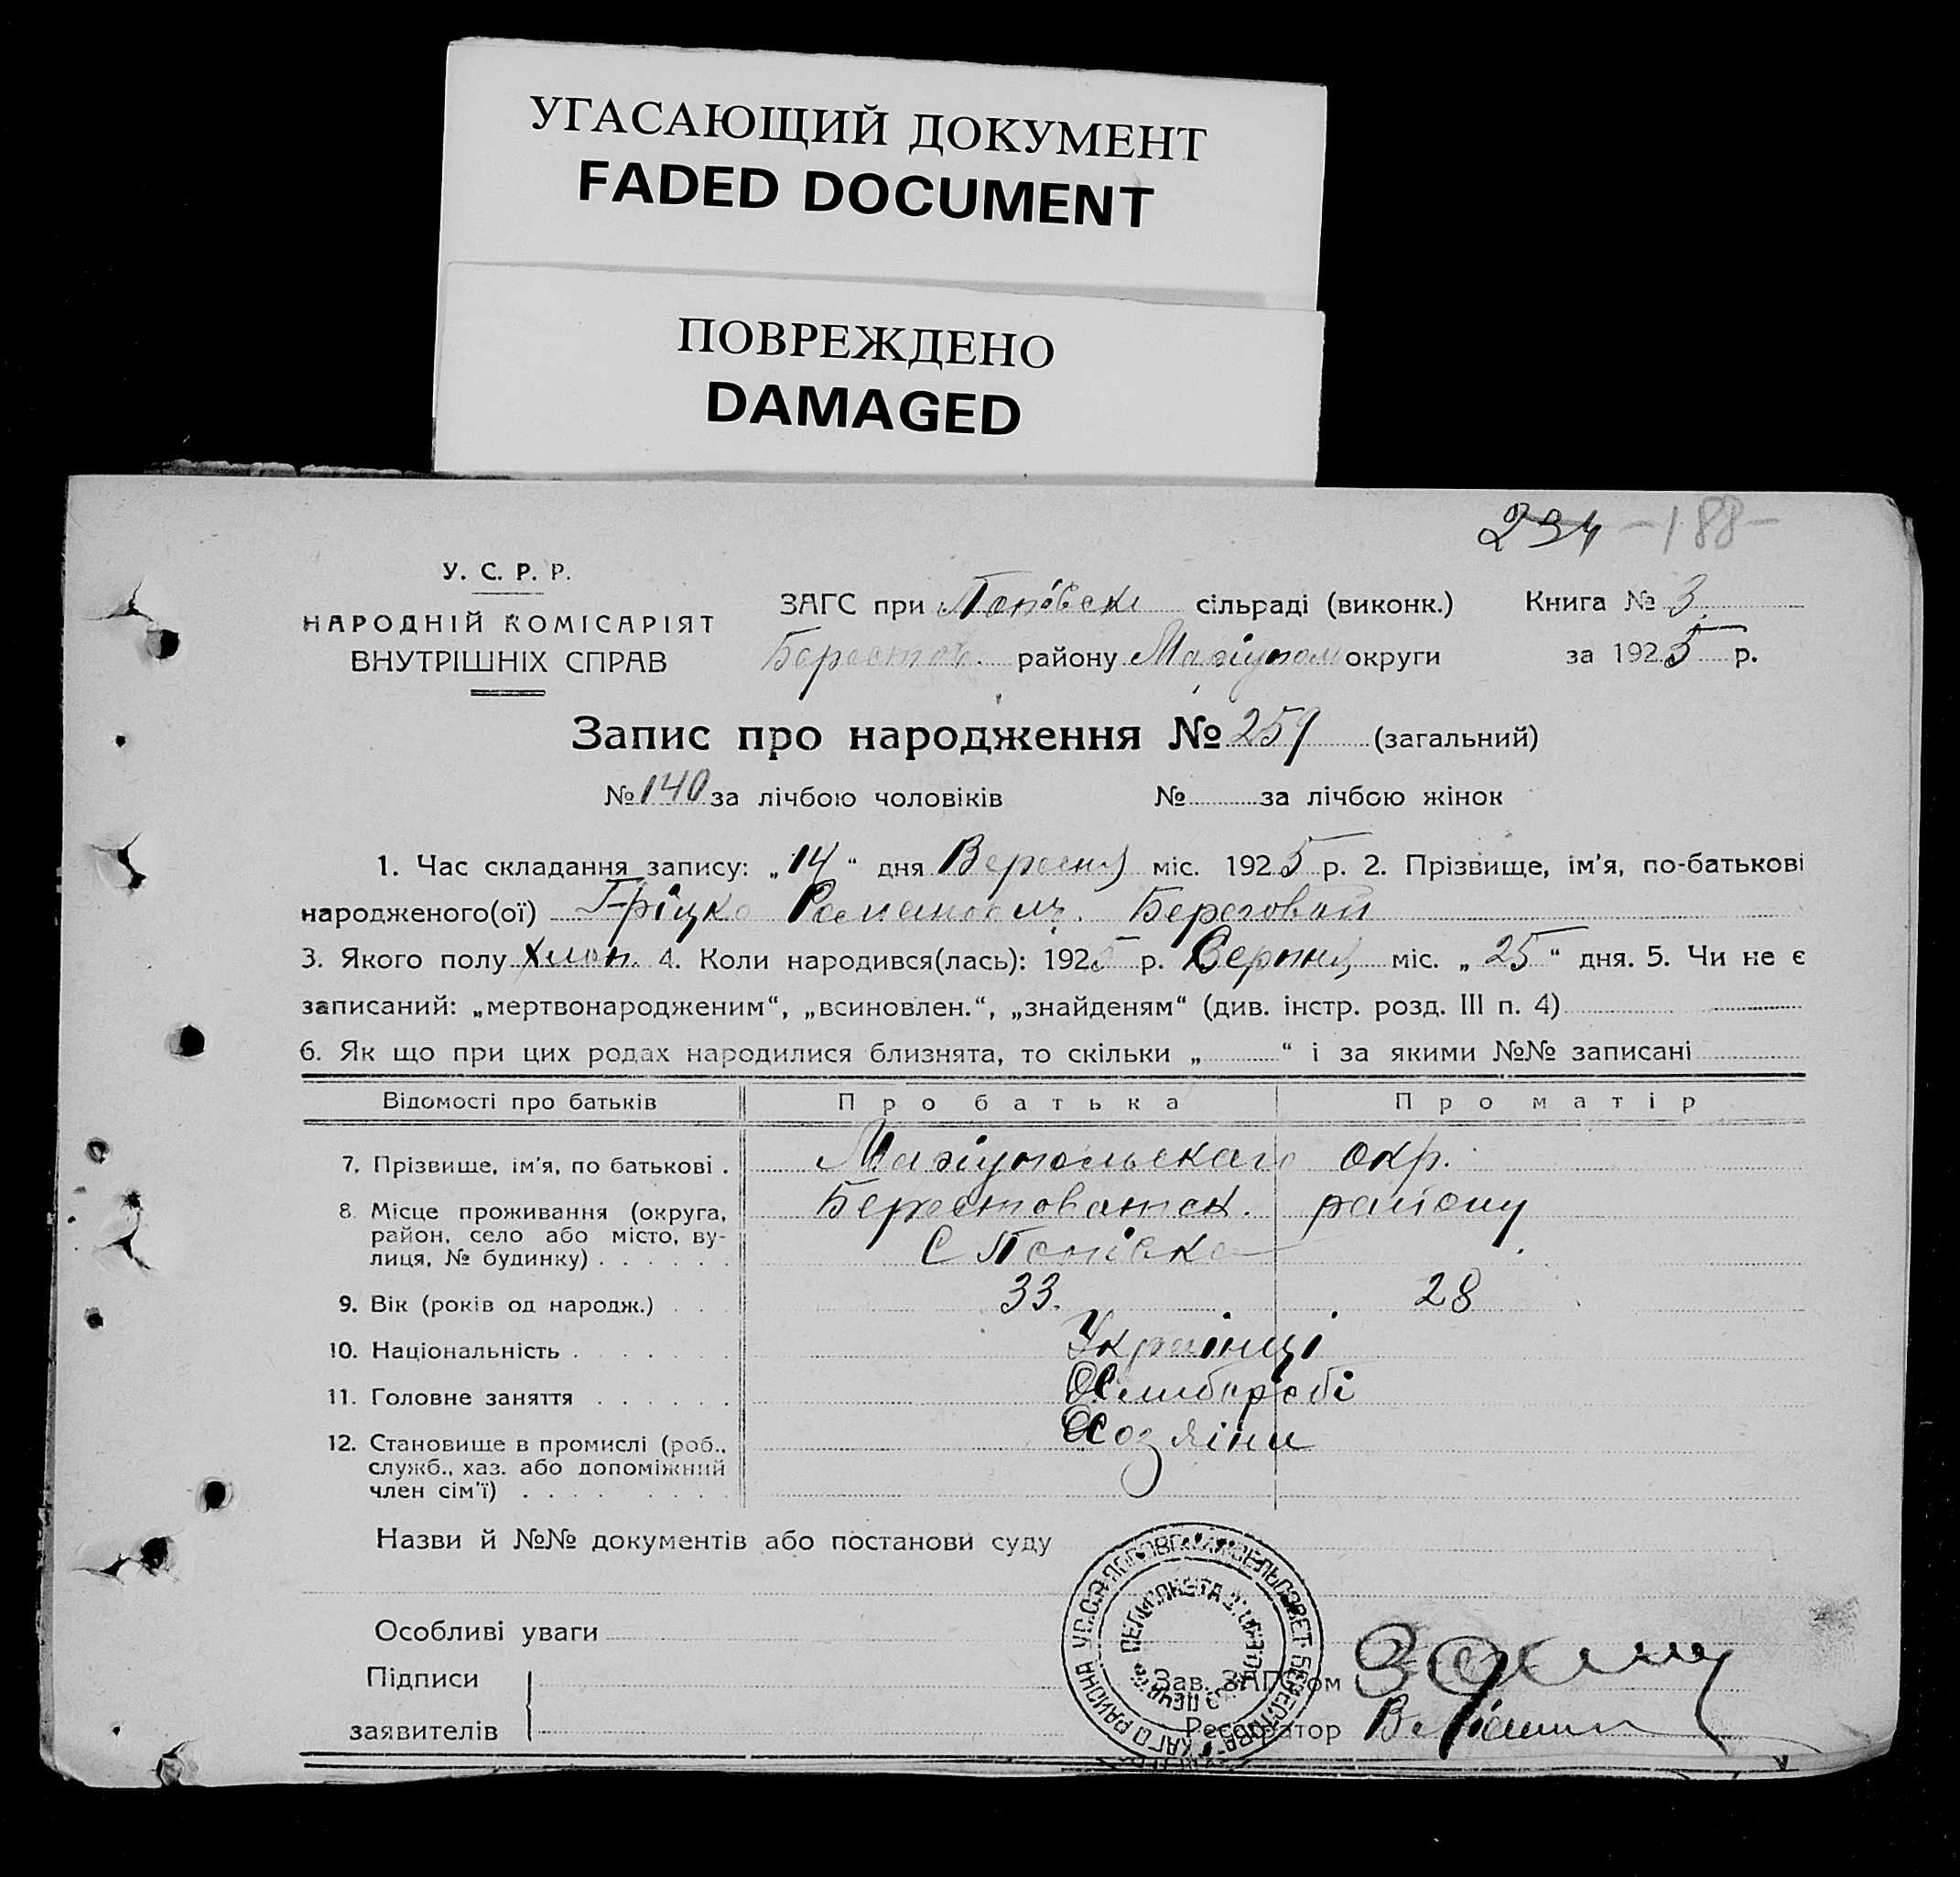 УГАСАЮЩИЙ ДОКУМЕНТ
FADED DOCUMENT
ПОВРЕЖДЕНО
DAMAGED
234 -188-
У. С. Р. Р.
НАРОДНІЙ КОМІСАРІЯТ
ВНУТРІШНІХ СПРАВ
ЗАГС при Попівскі сільраді (виконк.) Книга № 3
Берестов. району Маріупол округи за 1925 р.
Запис про народження № 259 (загальний)
№ 140 за лічбою чоловіків № за лічбою жінок
1. Час складання запису: „14“ дня Вересня міс. 1925 р. 2. Прізвище, ім'я, по-батькові
народженого(ої) Гріцко Романович Береговой
3. Якого полу Хлоп. 4. Коли народився(лась): 1925 р. міс. „25“ дня. 5. Чи не є
записаний: „мертвонародженим“, „всиновлен.“, „знайденям“ (див. інстр. розд. III п. 4)
6. Як що при цих родах народилися близнята, то скільки „ “ і за якими №№ записані
Відомості про батьків Про батька Про матір
7. Прізвище, ім'я, по батькові . Маріупольскаго окр.
8. Місце проживання (округа, район, село або місто, вулиця, № будинку) Берестоватск. району
С Попівка
9. Вік (років од народж.) 33. 28
10. Національність Украінці
11. Головне заняття Хлибороби
12. Становище в промислі (роб., служб., хаз. або допоміжний член сім'ї) Хозяіни
Назви й №№ документів або постанови суду
Особливі уваги
Підписи
заявителів
Зав. ЗАГСом
Реєстратор